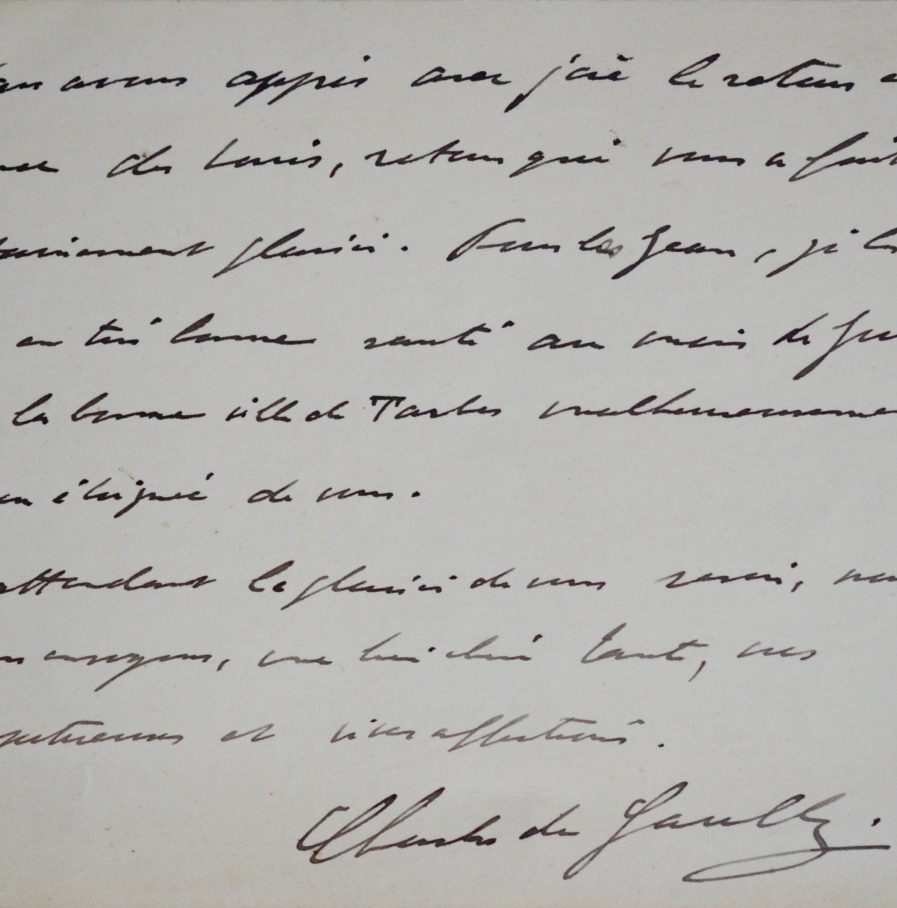 avons appris avec joie le retour
des Louis, retour qui vous a fait
plaisir. Pour les Jean, j'ai
en très bonne santé au mois de
la bonne ville de Tarbes malheureusement
éloignée de vous.
attendant le plaisir de vous revoir,
envoyons, ma bien chère Tante, nos
et vives affections.
Charles de Gaulle.